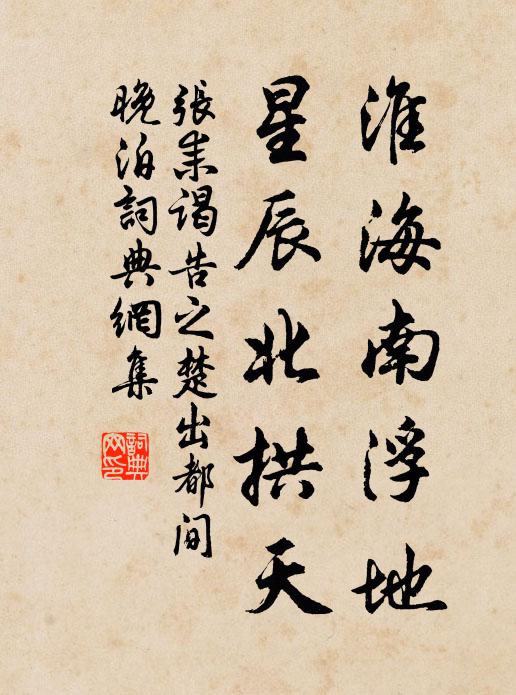 淮海南浮地
星辰北拱天
張耒謁告之楚出都間
晚泊詞典網集
詞典
网印